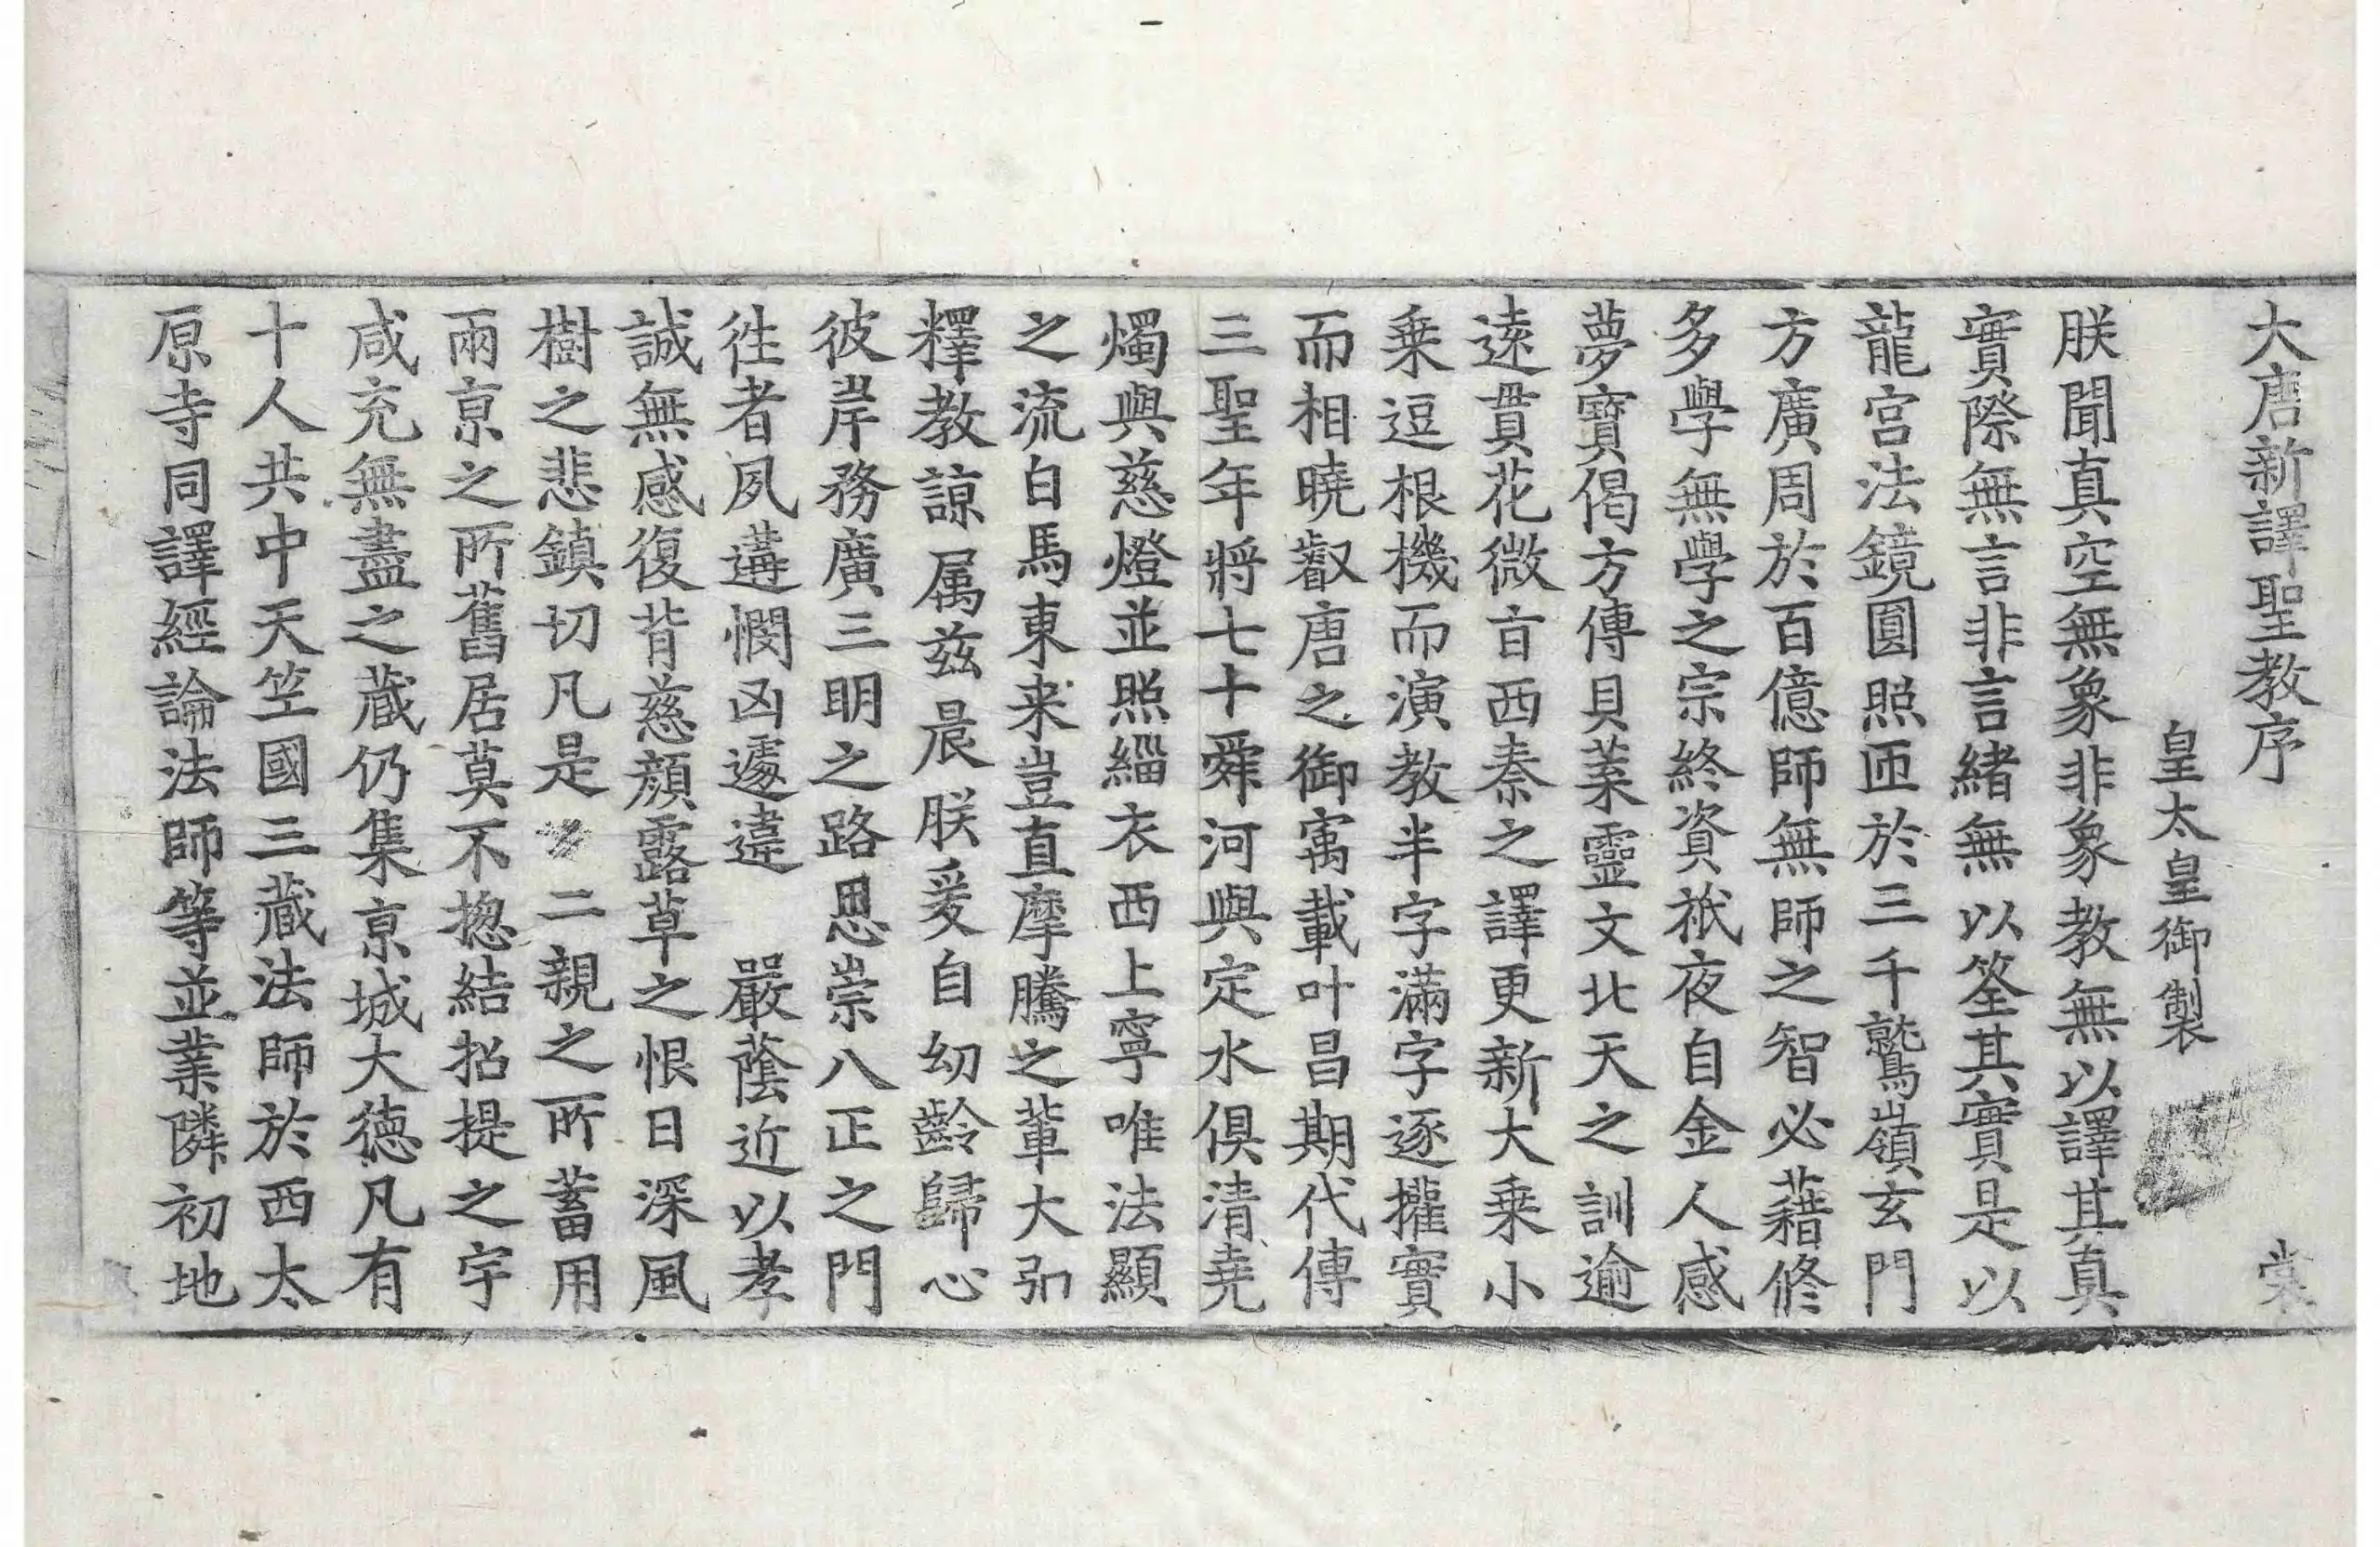 大唐新譯聖教序 裳
皇太皇御製
朕聞真空無象非象教無以譯其真
實際無言非言緒無以筌其實是以
龍宮法鏡圓照匝於三千鷲嶺玄門
方廣周於百億師無師之智必藉修
多學無學之宗終資祇夜自金人感
夢寶偈方傳貝葉靈文北天之訓逾
遠貫花微言西秦之譯更新大乗小
乗逗根機而演教半字滿字逐攉實
而相曉叡唐之御㝢載叶昌期代傳
三聖年將七十舜河與定水俱清堯
燭與慈燈並照緇衣西上寧唯法顯
之流白馬東来豈直摩騰之輩大弘
釋教諒属茲晨朕爰自幼齡歸心
彼岸務廣三明之路思崇八正之門
徃者夙遘憫凶遽違 嚴蔭近以孝
誠無感復背慈顔露草之恨日深風
樹之悲鎮切凡是 二親之所蓄用
兩京之所舊居莫不捴結招提之宇
咸充無盡之藏仍集京城大德凡有
十人共中天竺國三藏法師於西太
原寺同譯經論法師等並業隣初地